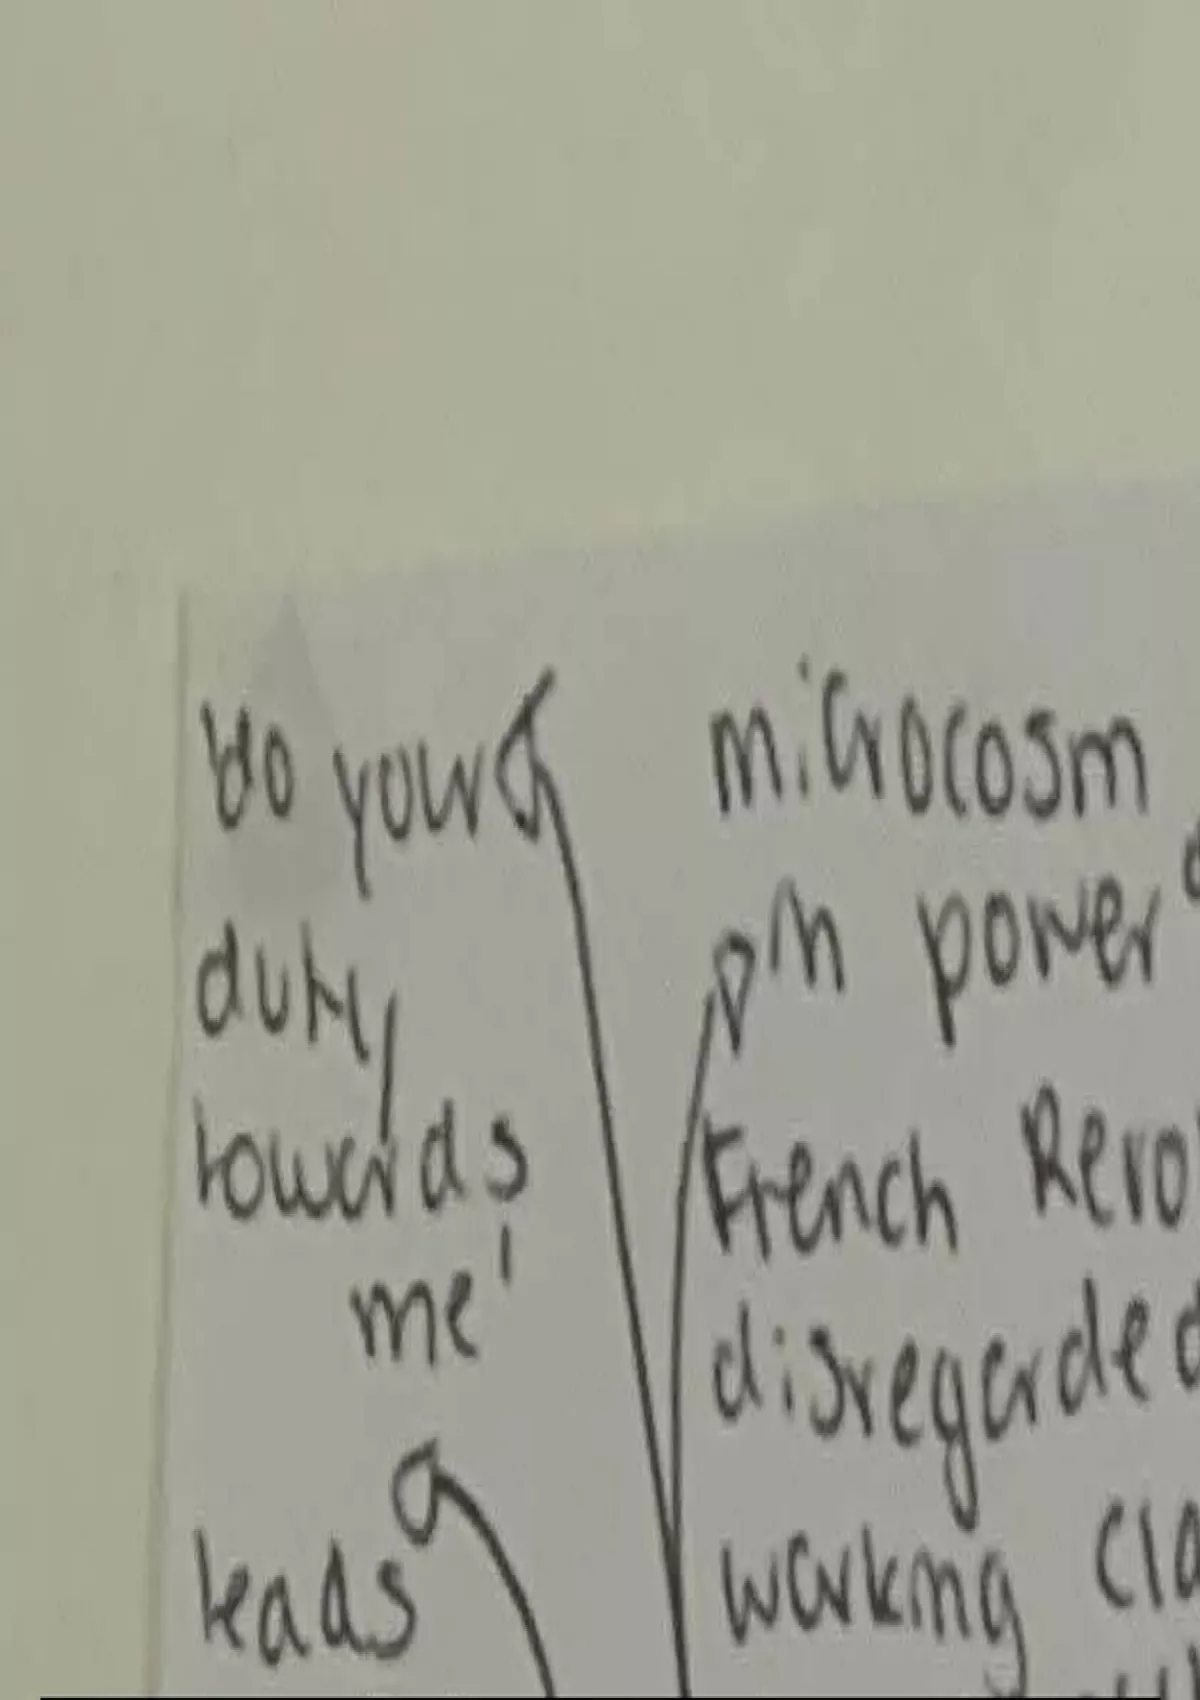 do your
duty
towards
me'
leads
microcosm
in power
French Revo
disregarded
working cla